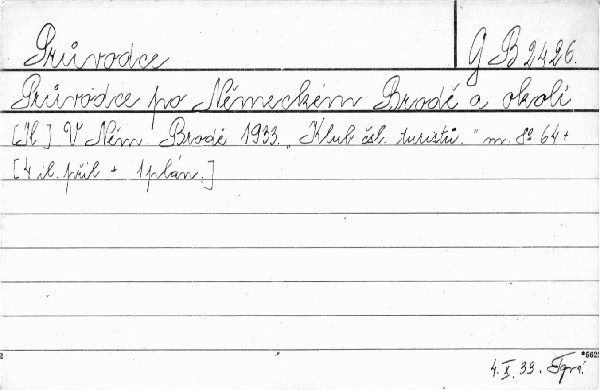 Průvodce GB 2426.
Průvodce po Německém Brodě a okolí
[Il] V Něm. Brodě 1933. "Klub čsl. turistů." m. 8° 64 +
[4 il. příl + 1 plán.]
*562
4. X. 33.